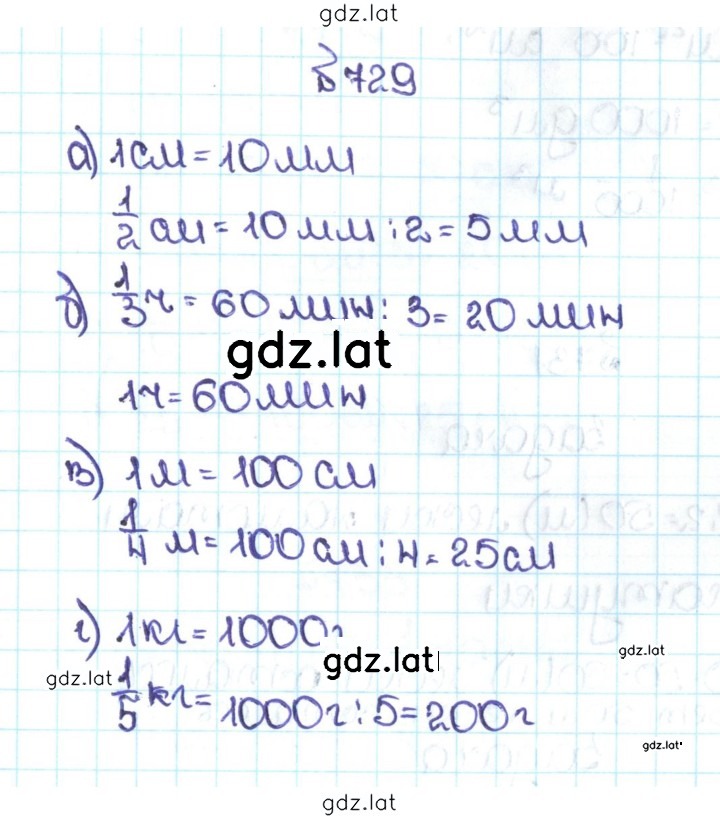 gdz.lat
№729
а) 1см = 10мм
1/2 см = 10мм : 2 = 5мм
б) 1/3 ч = 60 мин : 3 = 20 мин
gdz.lat
1ч = 60мин
в) 1м = 100 см
1/4 м = 100см : 4 = 25см
г) 1кг = 1000г
gdz.lat
gdz.lat
gdz.lat
1/5 кг = 1000г : 5 = 200г
gdz.lat
gdz.lat